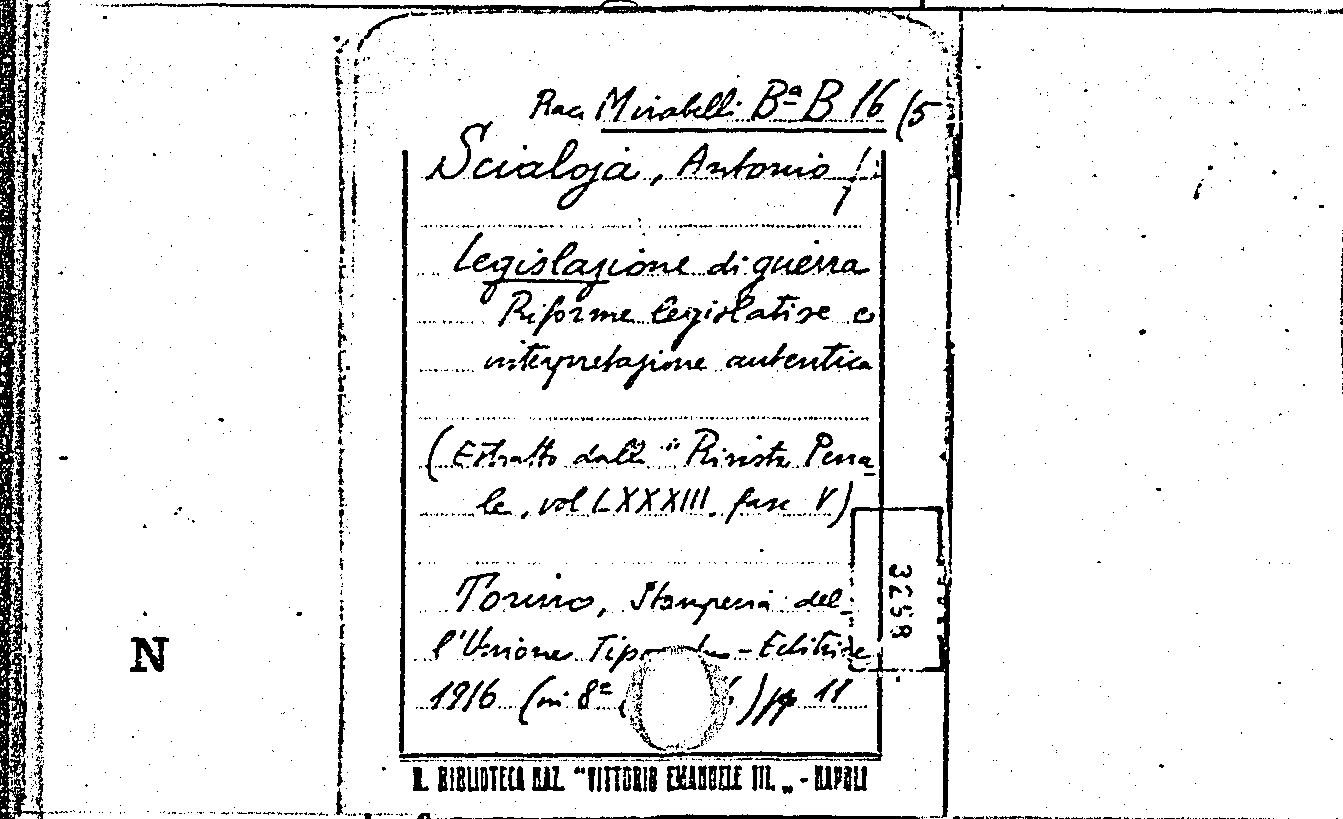 Rac. Mirabelli Bª B 16 (5
Scialoja, Antonio
Legislazione di guerra
Riforme legislative e
interpretazione autentica
(Estratto dalla "Rivista Pena=
le, vol LXXXIII, fasc V)
3258
Torino, Stamperia del=
l'Unione Tipo - Editrice
N
1916 (in 8º ) pp 11
R. BIBLIOTECA NAZ. "VITTORIO EMANUELE III. „ - NAPOLI